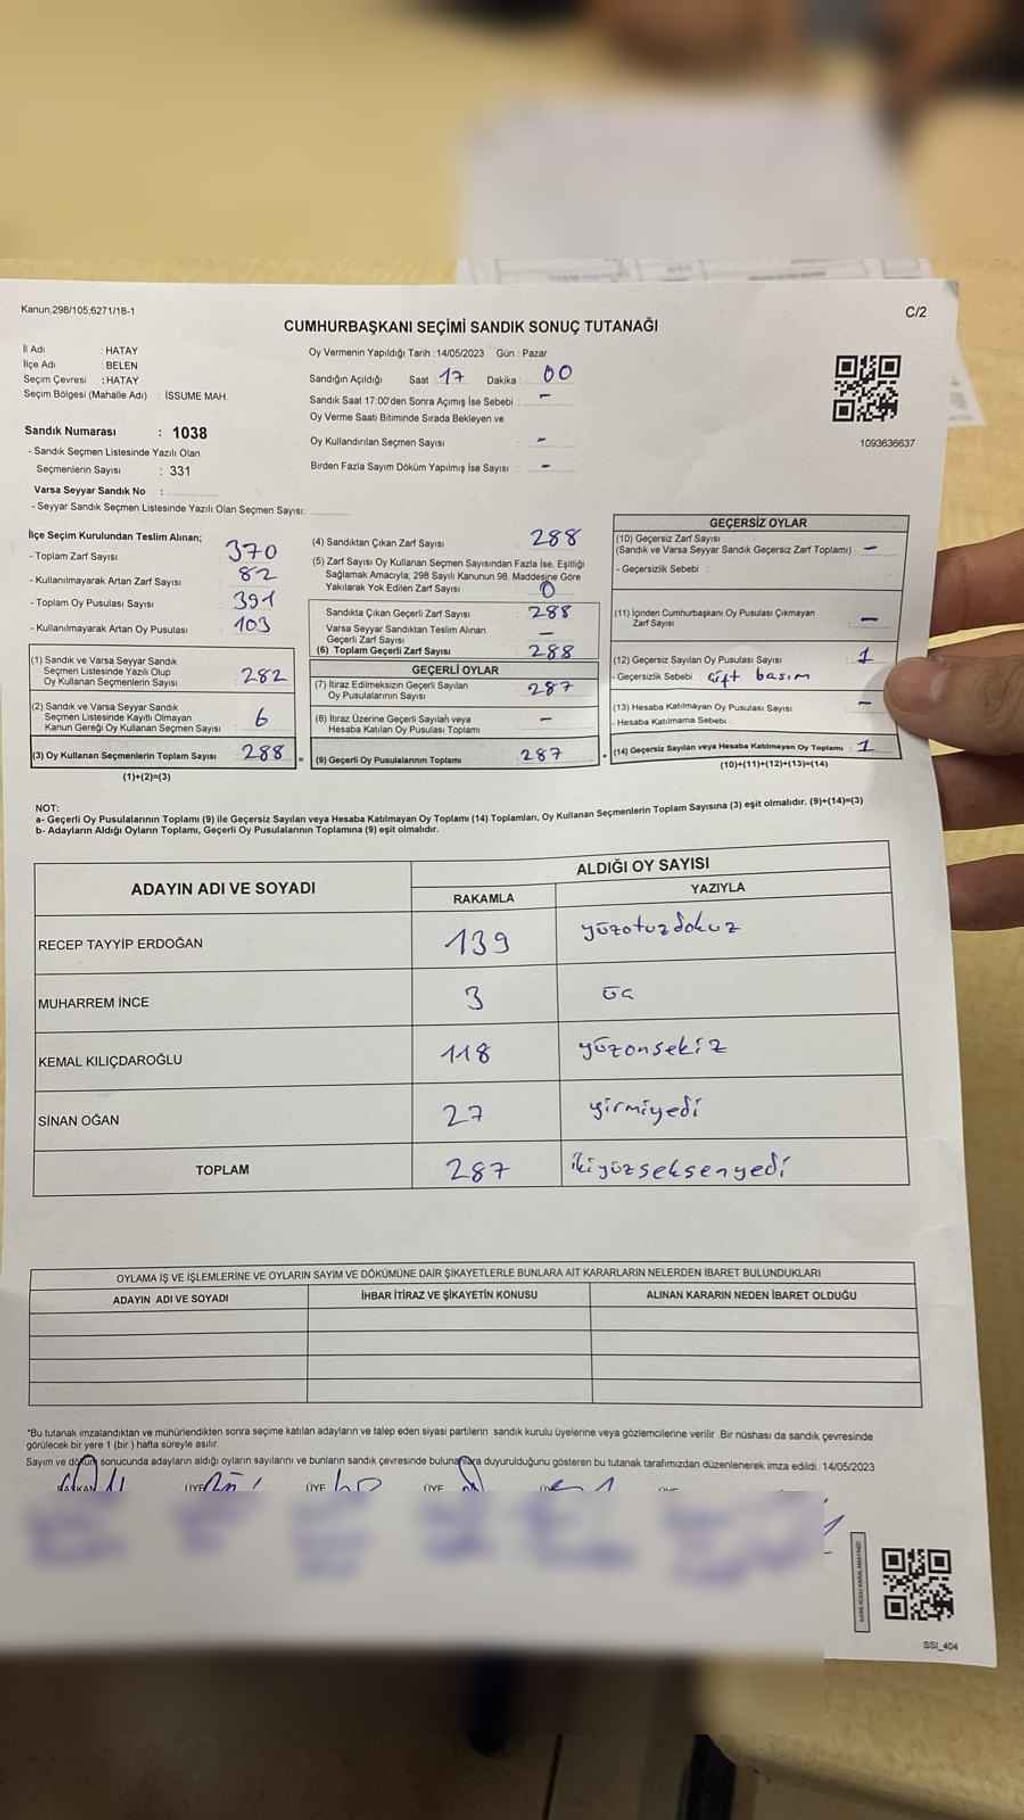 Kanun.298/105;6271/18-1
C/2
CUMHURBAŞKANI SEÇİMİ SANDIK SONUÇ TUTANAĞI
İl Adı : HATAY
İlçe Adı : BELEN
Seçim Çevresi : HATAY
Seçim Bölgesi (Mahalle Adı) : ISSUME MAH.
Sandık Numarası : 1038
- Sandık Seçmen Listesinde Yazılı Olan
Seçmenlerin Sayısı : 331
Varsa Seyyar Sandık No :
- Seyyar Sandık Seçmen Listesinde Yazılı Olan Seçmen Sayısı:
Oy Vermenin Yapıldığı Tarih :14/05/2023 Gün : Pazar
Sandığın Açıldığı Saat 17 Dakika 00
Sandık Saat 17:00'den Sonra Açımış İse Sebebi : -
Oy Verme Saati Bitiminde Sırada Bekleyen ve
Oy Kullandırılan Seçmen Sayısı -
Birden Fazla Sayım Döküm Yapılmış İse Sayısı -
1093636637
İlçe Seçim Kurulundan Teslim Alınan;
- Toplam Zarf Sayısı 370
- Kullanılmayarak Artan Zarf Sayısı 82
- Toplam Oy Pusulası Sayısı 391
- Kullanılmayarak Artan Oy Pusulası 103
(1) Sandık ve Varsa Seyyar Sandık
Seçmen Listesinde Yazılı Olup
Oy Kullanan Seçmenlerin Sayısı 282
(2) Sandık ve Varsa Seyyar Sandık
Seçmen Listesinde Kayıtlı Olmayan
Kanun Gereği Oy Kullanan Seçmen Sayısı 6
(3) Oy Kullanan Seçmenlerin Toplam Sayısı 288 =
(1)+(2)=(3)
(4) Sandıktan Çıkan Zarf Sayısı 288
(5) Zarf Sayısı Oy Kullanan Seçmen Sayısından Fazla İse, Eşitliği
Sağlamak Amacıyla; 298 Sayılı Kanunun 98. Maddesine Göre
Yakılarak Yok Edilen Zarf Sayısı 0
Sandıkta Çıkan Geçerli Zarf Sayısı 288
Varsa Seyyar Sandıktan Teslim Alınan
Geçerli Zarf Sayısı -
(6) Toplam Geçerli Zarf Sayısı 288
GEÇERLİ OYLAR
(7) İtiraz Edilmeksizin Geçerli Sayılan
Oy Pusulalarının Sayısı 287
(8) İtiraz Üzerine Geçerli Sayılan veya
Hesaba Katılan Oy Pusulası Toplamı -
(9) Geçerli Oy Pusulalarının Toplamı 287 +
GEÇERSİZ OYLAR
(10) Geçersiz Zarf Sayısı
(Sandık ve Varsa Seyyar Sandık Geçersiz Zarf Toplamı) -
- Geçersizlik Sebebi :
(11) İçinden Cumhurbaşkanı Oy Pusulası Çıkmayan
Zarf Sayısı -
(12) Geçersiz Sayılan Oy Pusulası Sayısı 1
- Geçersizlik Sebebi çift basım
(13) Hesaba Katılmayan Oy Pusulası Sayısı -
- Hesaba Katılmama Sebebi :
(14) Geçersiz Sayılan veya Hesaba Katılmayan Oy Toplamı 1
(10)+(11)+(12)+(13)=(14)
NOT:
a- Geçerli Oy Pusulalarının Toplamı (9) ile Geçersiz Sayılan veya Hesaba Katılmayan Oy Toplamı (14) Toplamları, Oy Kullanan Seçmenlerin Toplam Sayısına (3) eşit olmalıdır. (9)+(14)=(3)
b- Adayların Aldığı Oyların Toplamı, Geçerli Oy Pusulalarının Toplamına (9) eşit olmalıdır.
ADAYIN ADI VE SOYADI
ALDIĞI OY SAYISI
RAKAMLA YAZIYLA
RECEP TAYYİP ERDOĞAN 139 yüzotuzdokuz
MUHARREM İNCE 3 üç
KEMAL KILIÇDAROĞLU 118 yüzonsekiz
SİNAN OĞAN 27 yirmiyedi
TOPLAM 287 ikiyüzseksenyedi
OYLAMA İŞ VE İŞLEMLERİNE VE OYLARIN SAYIM VE DÖKÜMÜNE DAİR ŞİKAYETLERLE BUNLARA AİT KARARLARIN NELERDEN İBARET BULUNDUKLARI
ADAYIN ADI VE SOYADI İHBAR İTİRAZ VE ŞİKAYETİN KONUSU ALINAN KARARIN NEDEN İBARET OLDUĞU
*Bu tutanak imzalandıktan ve mühürlendikten sonra seçime katılan adayların ve talep eden siyasi partilerin sandık kurulu üyelerine veya gözlemcilerine verilir. Bir nüshası da sandık çevresinde
görülecek bir yere 1 (bir) hafta süreyle asılır.
Sayım ve döküm sonucunda adayların aldığı oyların sayılarını ve bunların sandık çevresinde bulunanlara duyurulduğunu gösteren bu tutanak tarafımızdan düzenlenerek imza edildi. 14/05/2023
BAŞKAN ÜYE ÜYE ÜYE
SSI_404